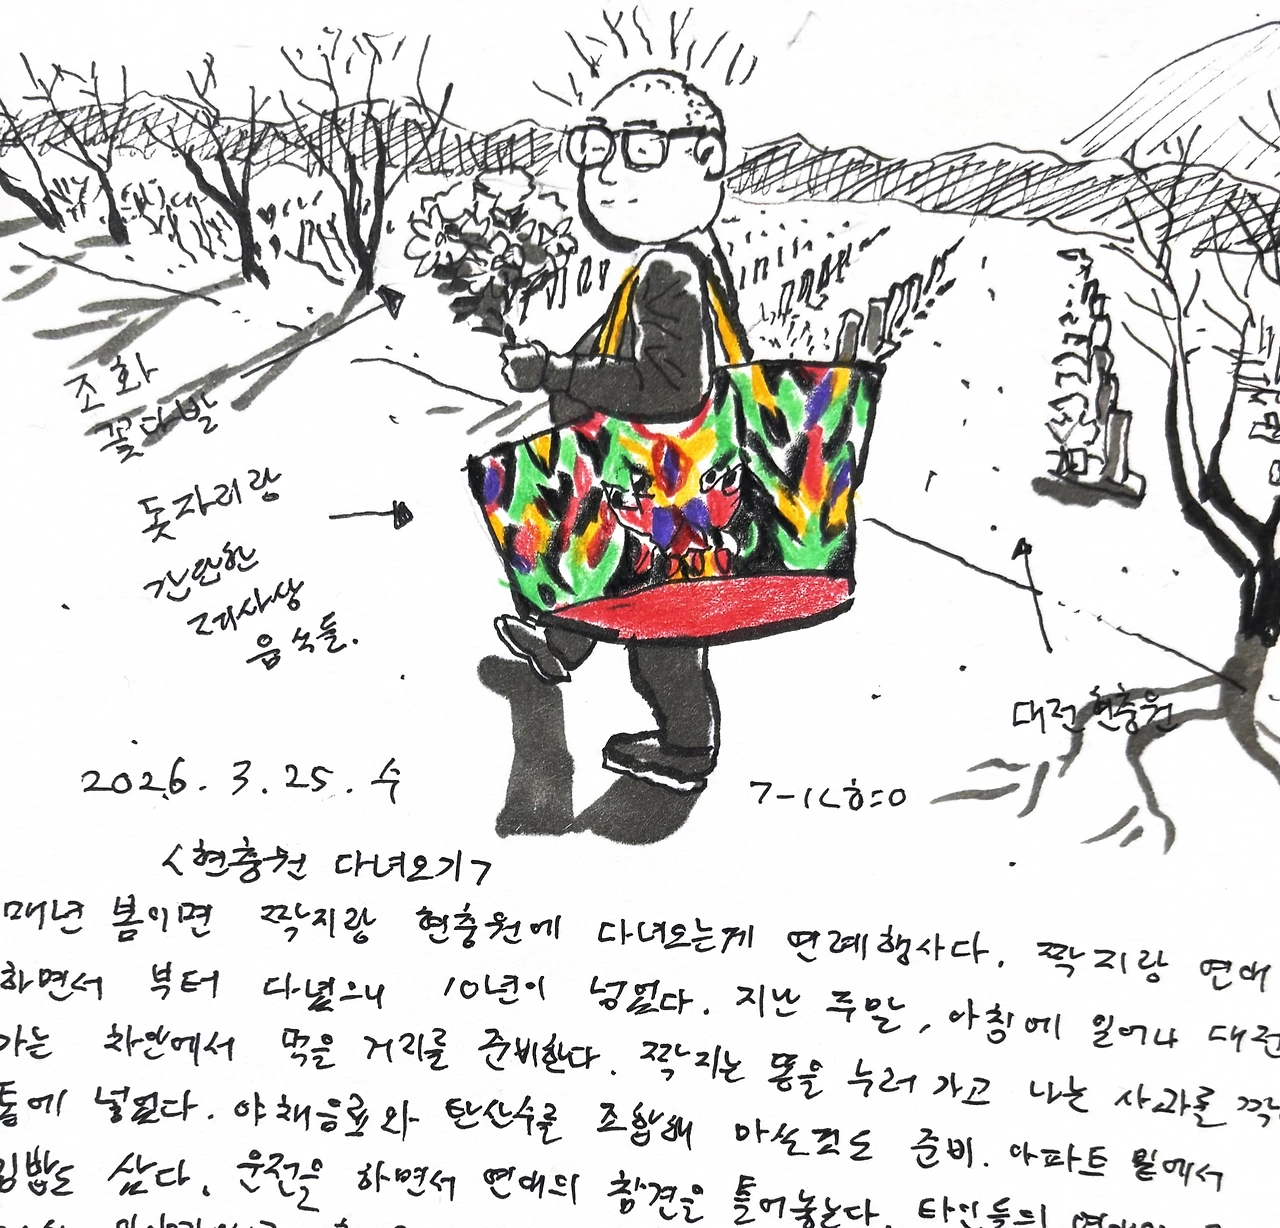 조화
꽃다발
돗자리랑
간단한
제사상
음식들.
대전현충원
2026. 3. 25. 수
<현충원 다녀오기>
매년 봄이면 짝지랑 현충원에 다녀오는게 연례행사다. 짝지랑 연애
하면서 부터 다녔으니 10년이 넘었다. 지난 주말, 아침에 일어나 대전
가는 차안에서 먹을 거리를 준비한다. 짝지는 똥을 누러 가고 나는 사과를 깍
통에 넣었다. 야채음료와 탄산수를 조합해 마실것도 준비. 아파트 밑에서
김밥도 샀다. 운전을 하면서 연애의 참견을 틀어놓는다. 타인들의